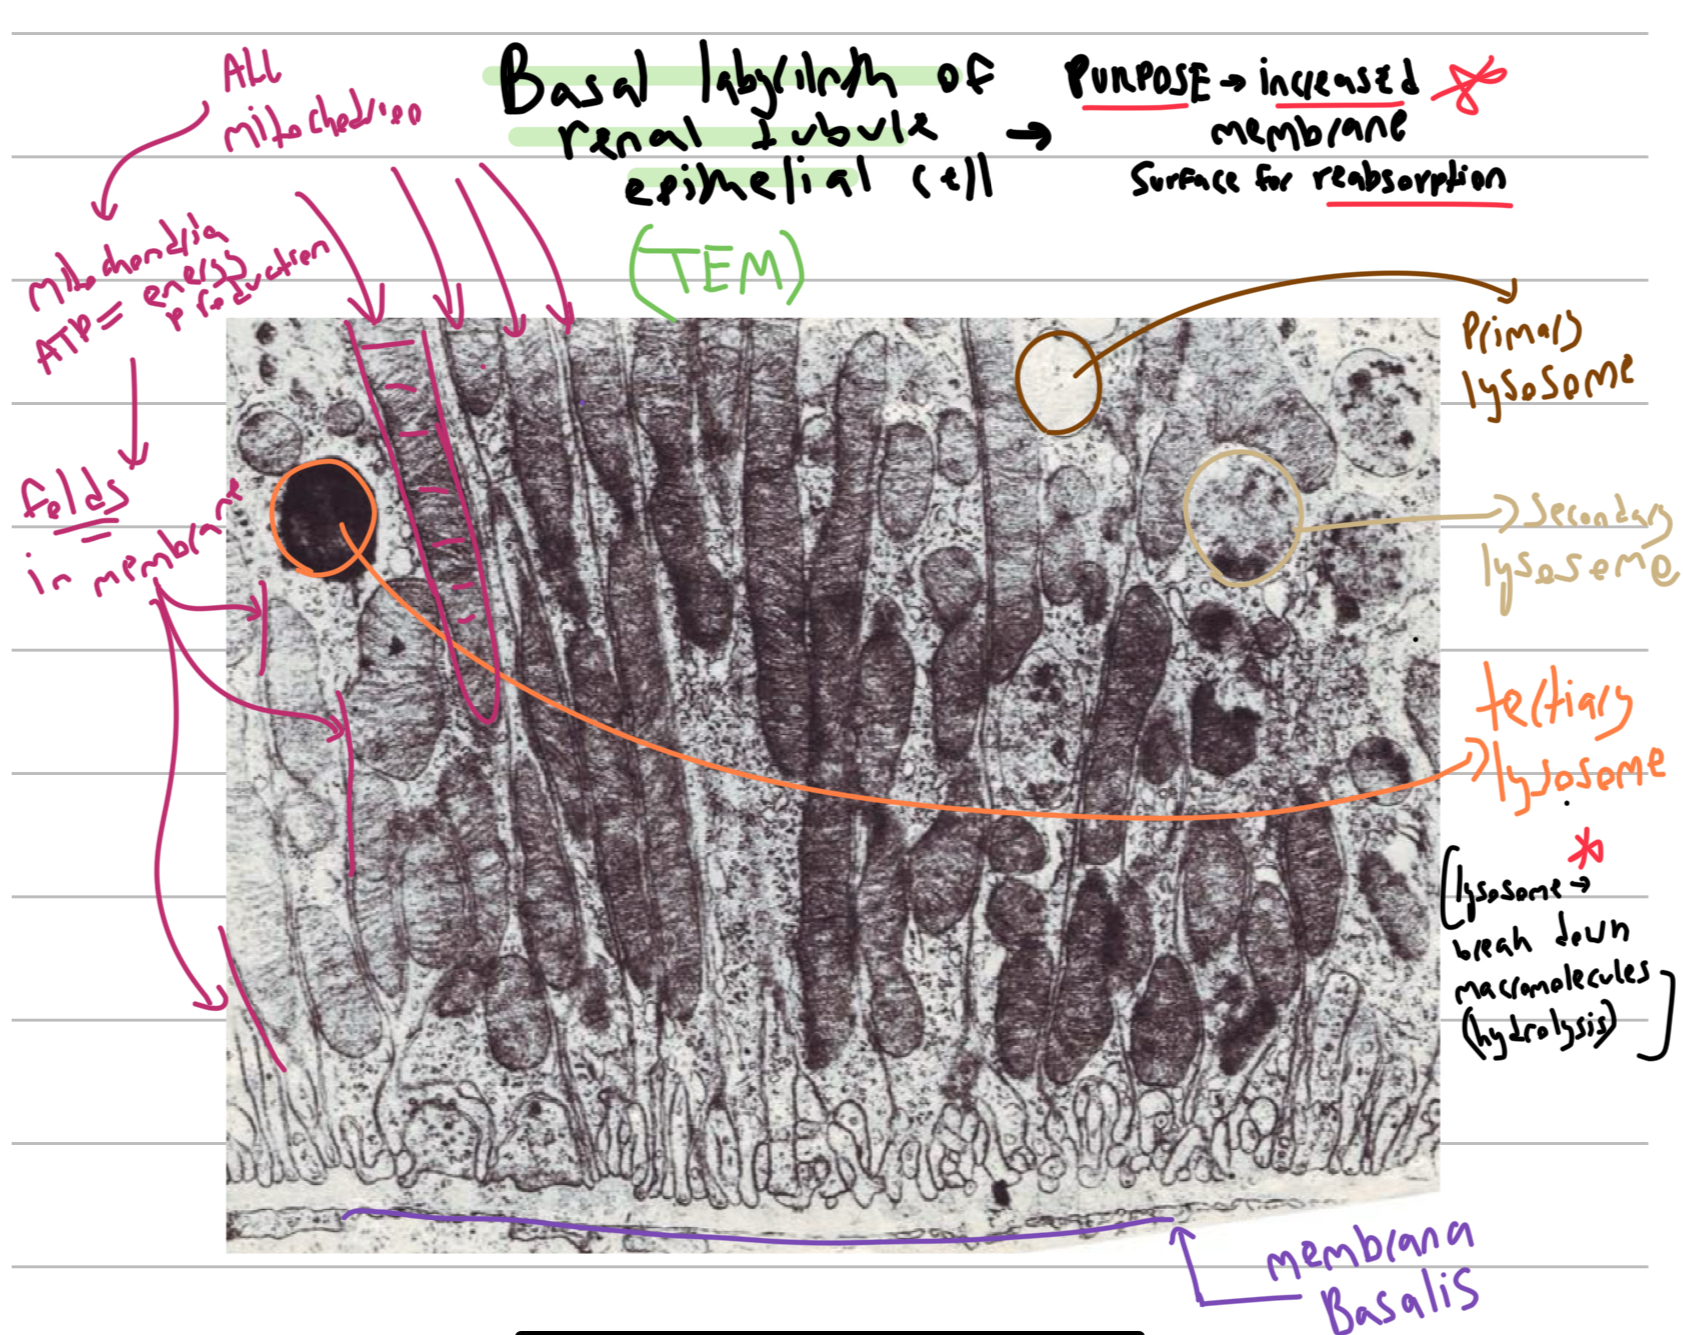 Basal labyrinth of
renal tubule
epithelial cell
→ PURPOSE → increased
membrane
surface for reabsorption
(TEM)
ALL
mitochondrien
mitochondria
ATP = energy
production
folds
in membrane
Primary
lysosome
Secondary
lysosome
tertiary
lysosome
[lysosome →
break down
macromolecules
(hydrolysis)]
membrana
Basalis